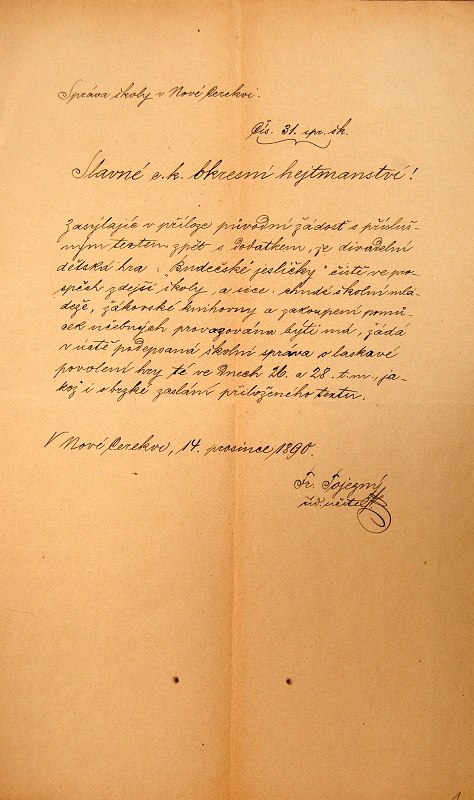 Správa školy v Nové Cerekvi.
Čís. 31. spr. šk.
Slavné c. k. Okresní hejtmanství!
Zasýlajíc v příloze původní žádost s přísluš-
ným textem zpět s dodatkem, že divadelní
dětská hra: „Budečské jesličky" čistě ve pro-
spěch zdejší školy, a sice: chudé školní mlá-
deže, žákovské knihovny a zakoupení pomů-
cek učebných provozována býti má, žádá
v úctě podepsaná školní správa o laskavé
povolení hry té ve dnech 26. a 28. t. m., ja-
kož i o brzké zaslání přiloženého textu.
V Nové Cerekvi, 14. prosince 1890.
Fr.
říd. učitel.